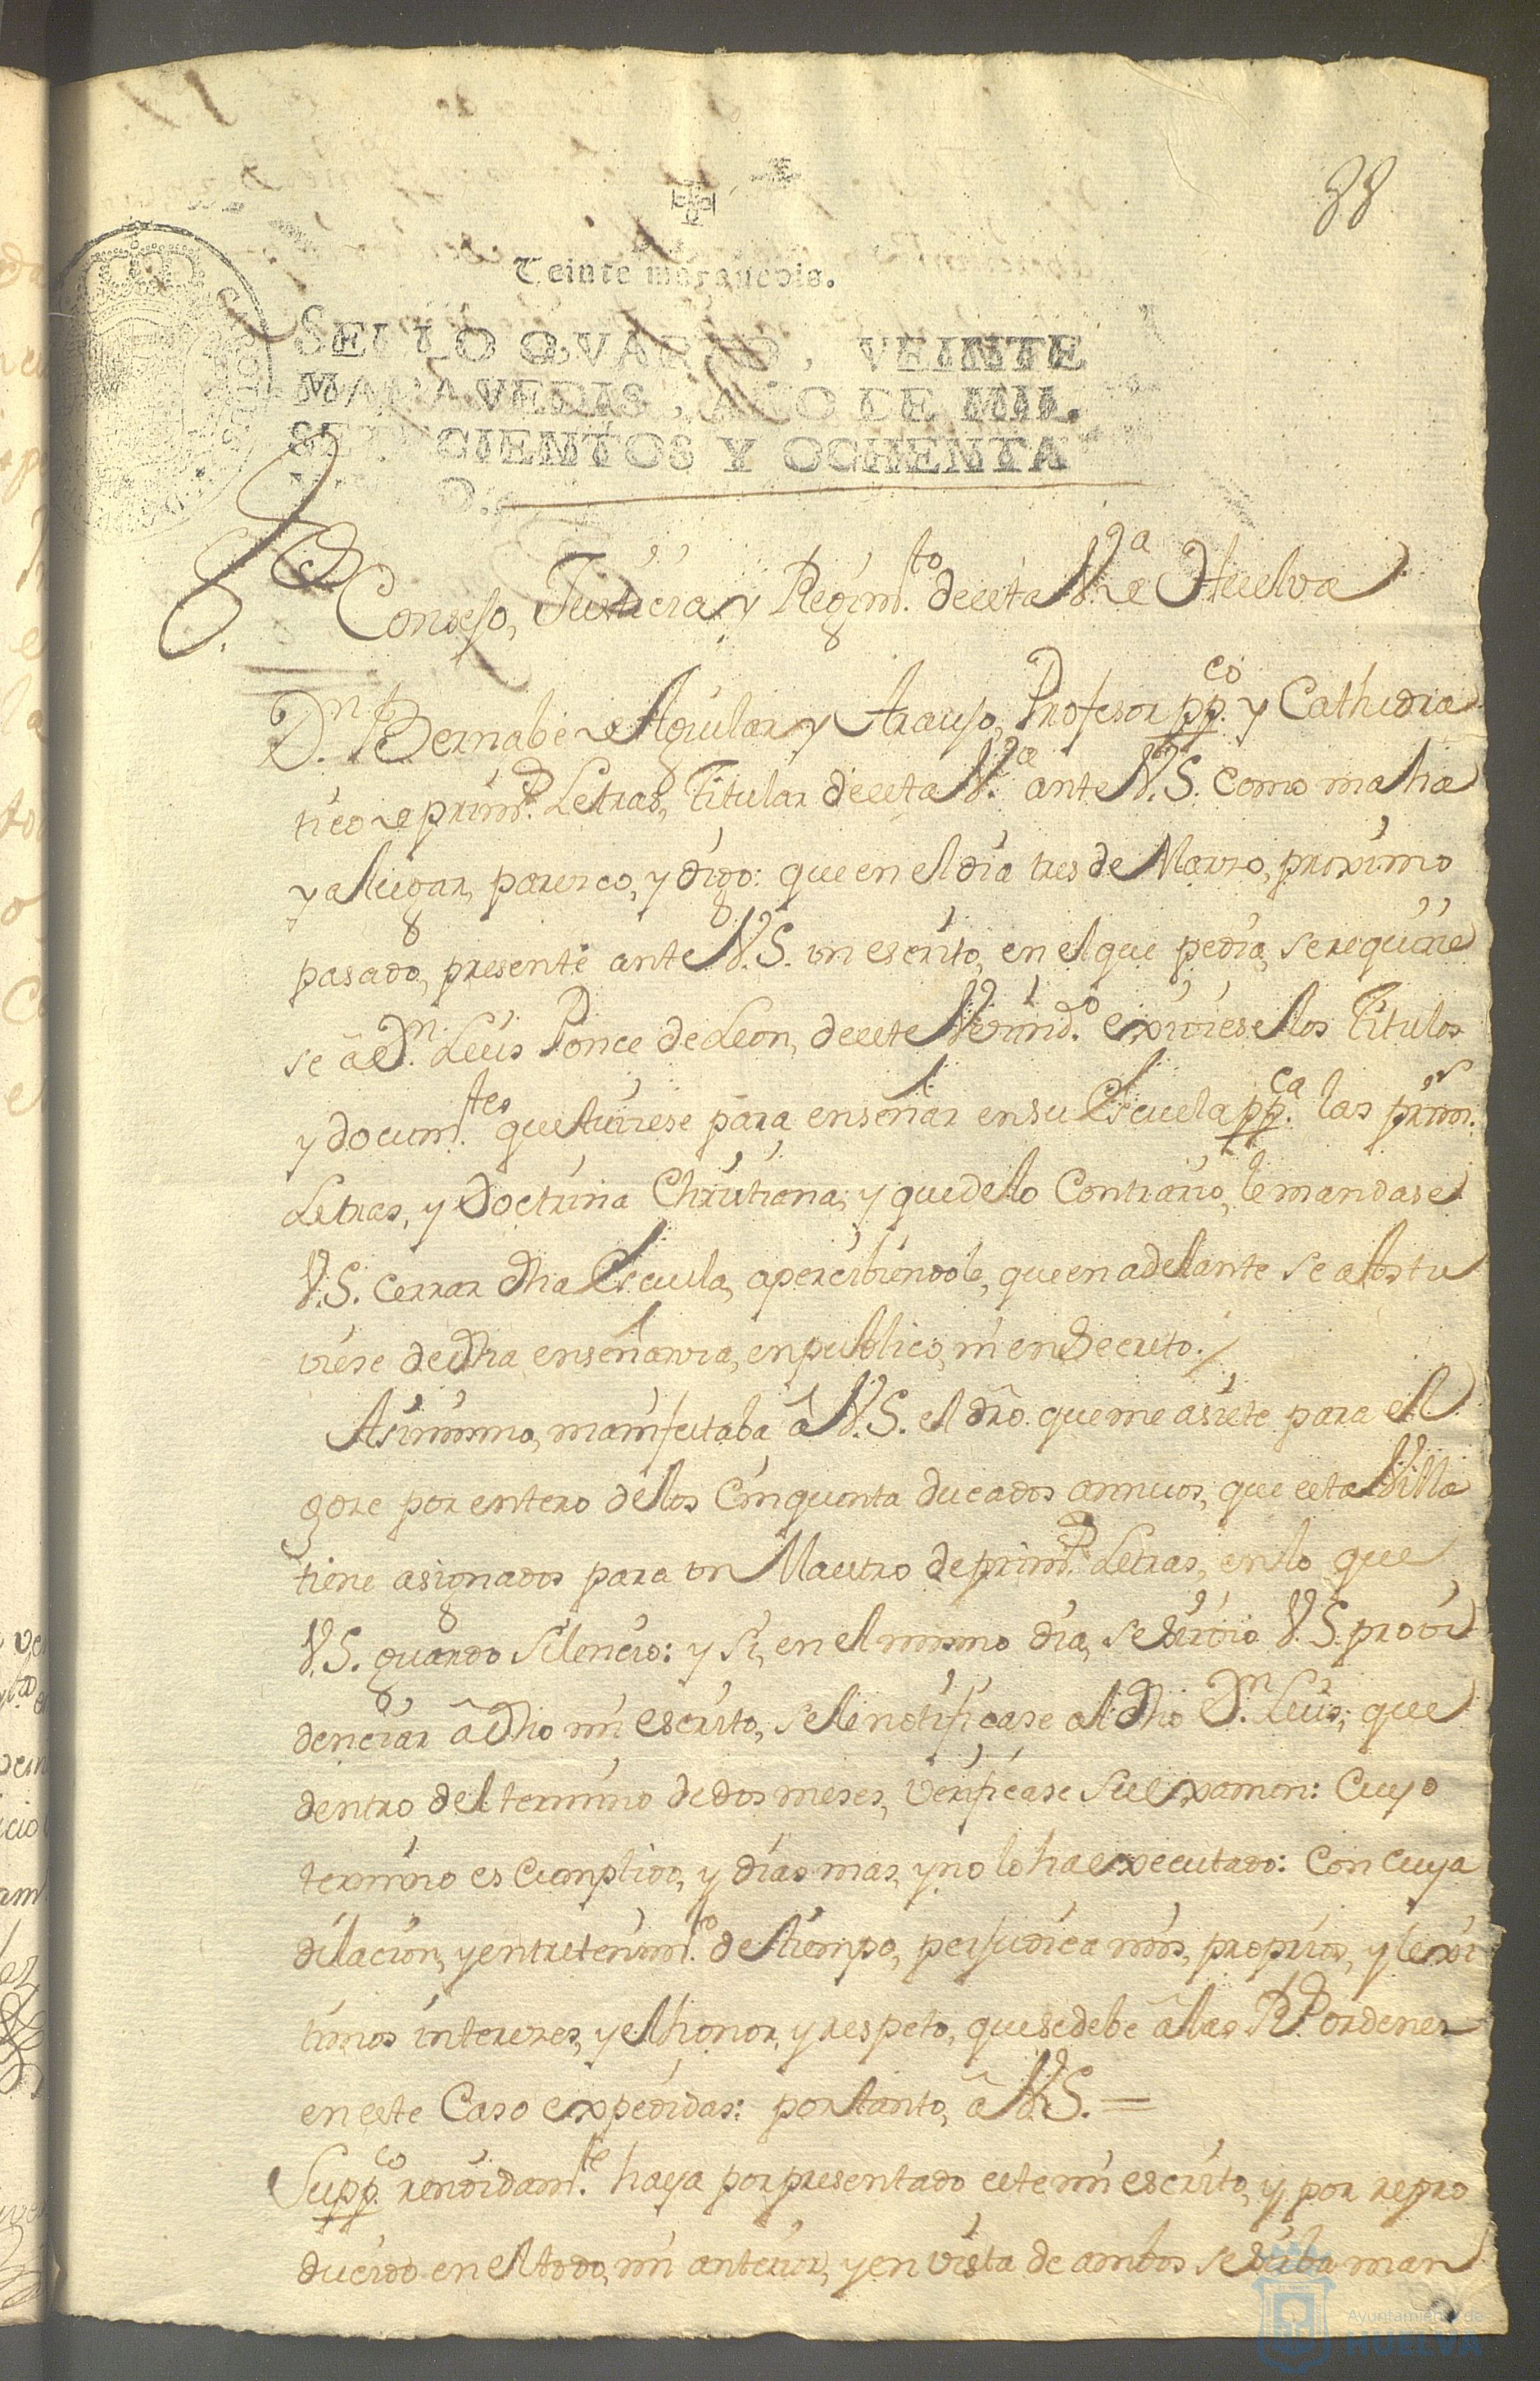 88
Veinte maravedis.
SELLO QVARTO, VEINTE
MARAVEDIS, AÑO DE MIL
SETECIENTOS Y OCHENTA
Consejo, Justicia, y Regim.to de esta V.a de Huelva
D.n Bernabè de Aguilar y Araujo, Profesor pp.co y Cathedra
tico de prim.s Letras, Titular de esta V.a ante V.S. como mas ha
ya lugar, parezco, y digo: que en el dia tres de Marzo, proximo
pasado, presentè ante V.S. un escrito, en el que pedia, se requirie
se â D.n Luis Ponce de Leon, de este Vecind.o exiviese los Titulos
y docum.tos que tuviese para enseñar en su Escuela pp.ca las prim.s
Letras, y Doctrina Christiana; y que de lo Contrario, le mandase
V.S. cerrar dha Escuela, apercibiendole, que en adelante se abstu
viese de dha enseñanza, en publico, ni en Secreto.
Asimismo, manifestaba â V.S. el dro. que me asiste para el
goze por entero de los Cinquenta ducados annuos, que esta Villa
tiene asignados para un Maestro de prim.s Letras, en lo que
V.S. guardo Silencio: y si, en el mismo dia, se sirvio V.S. provi
denciar â dho mi escrito, se le notificase al dho D.n Luis, que
dentro del termino de dos meses, verificase su examen: Cuyo
termino es Cumplido, y dias mas, y no lo ha executado: Con cuya
dilacion, y entretenim.to de tiempo, perjudica mis, proprios, y lexi
timos intereses, y el honor, y respeto, que se debe â las R.s ordenes
en este Caso expedidas: por tanto, â V.S. =
Supp.co rendidam.te haya por presentado este mi escrito, y por repro
ducido en el todo, mi anterior, y en vista de ambos se sirba man
Ayuntamiento de
HUELVA